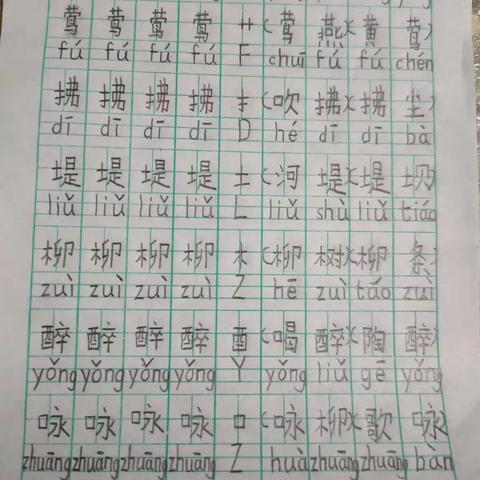 莺 莺 莺 莺 艹 (莺 燕)(黄 莺)
fú fú fú fú F chuī fú fú chén
拂 拂 拂 拂 扌 (吹 拂)(拂 尘)
dī dī dī dī D hé dī dī bà
堤 堤 堤 堤 土 (河 堤)(堤 坝)
liǔ liǔ liǔ liǔ L liǔ shù liǔ tiáo
柳 柳 柳 柳 木 (柳 树)(柳 条)
zuì zuì zuì zuì Z hē zuì táo zuì
醉 醉 醉 醉 酉 (喝 醉)(陶 醉)
yǒng yǒng yǒng yǒng Y yǒng liǔ gē yǒng
咏 咏 咏 咏 口 (咏 柳)(歌 咏)
zhuāng zhuāng zhuāng zhuāng Z huà zhuāng zhuāng bàn